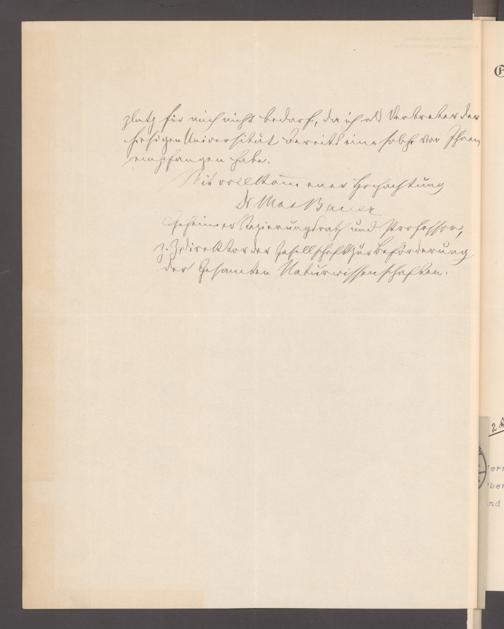 platz für mich nicht bedarf, da ich als Vertreter der
hiesigen Universität bereits eine solche von Ihnen
empfangen habe.
Mit vollkommener Hochachtung
Dr Max Bauer
Geheimer Regierungsrath und Professor,
z. Z. Direktor der Gesellschaft zur Beförderung
der gesamten Naturwissenschaften.